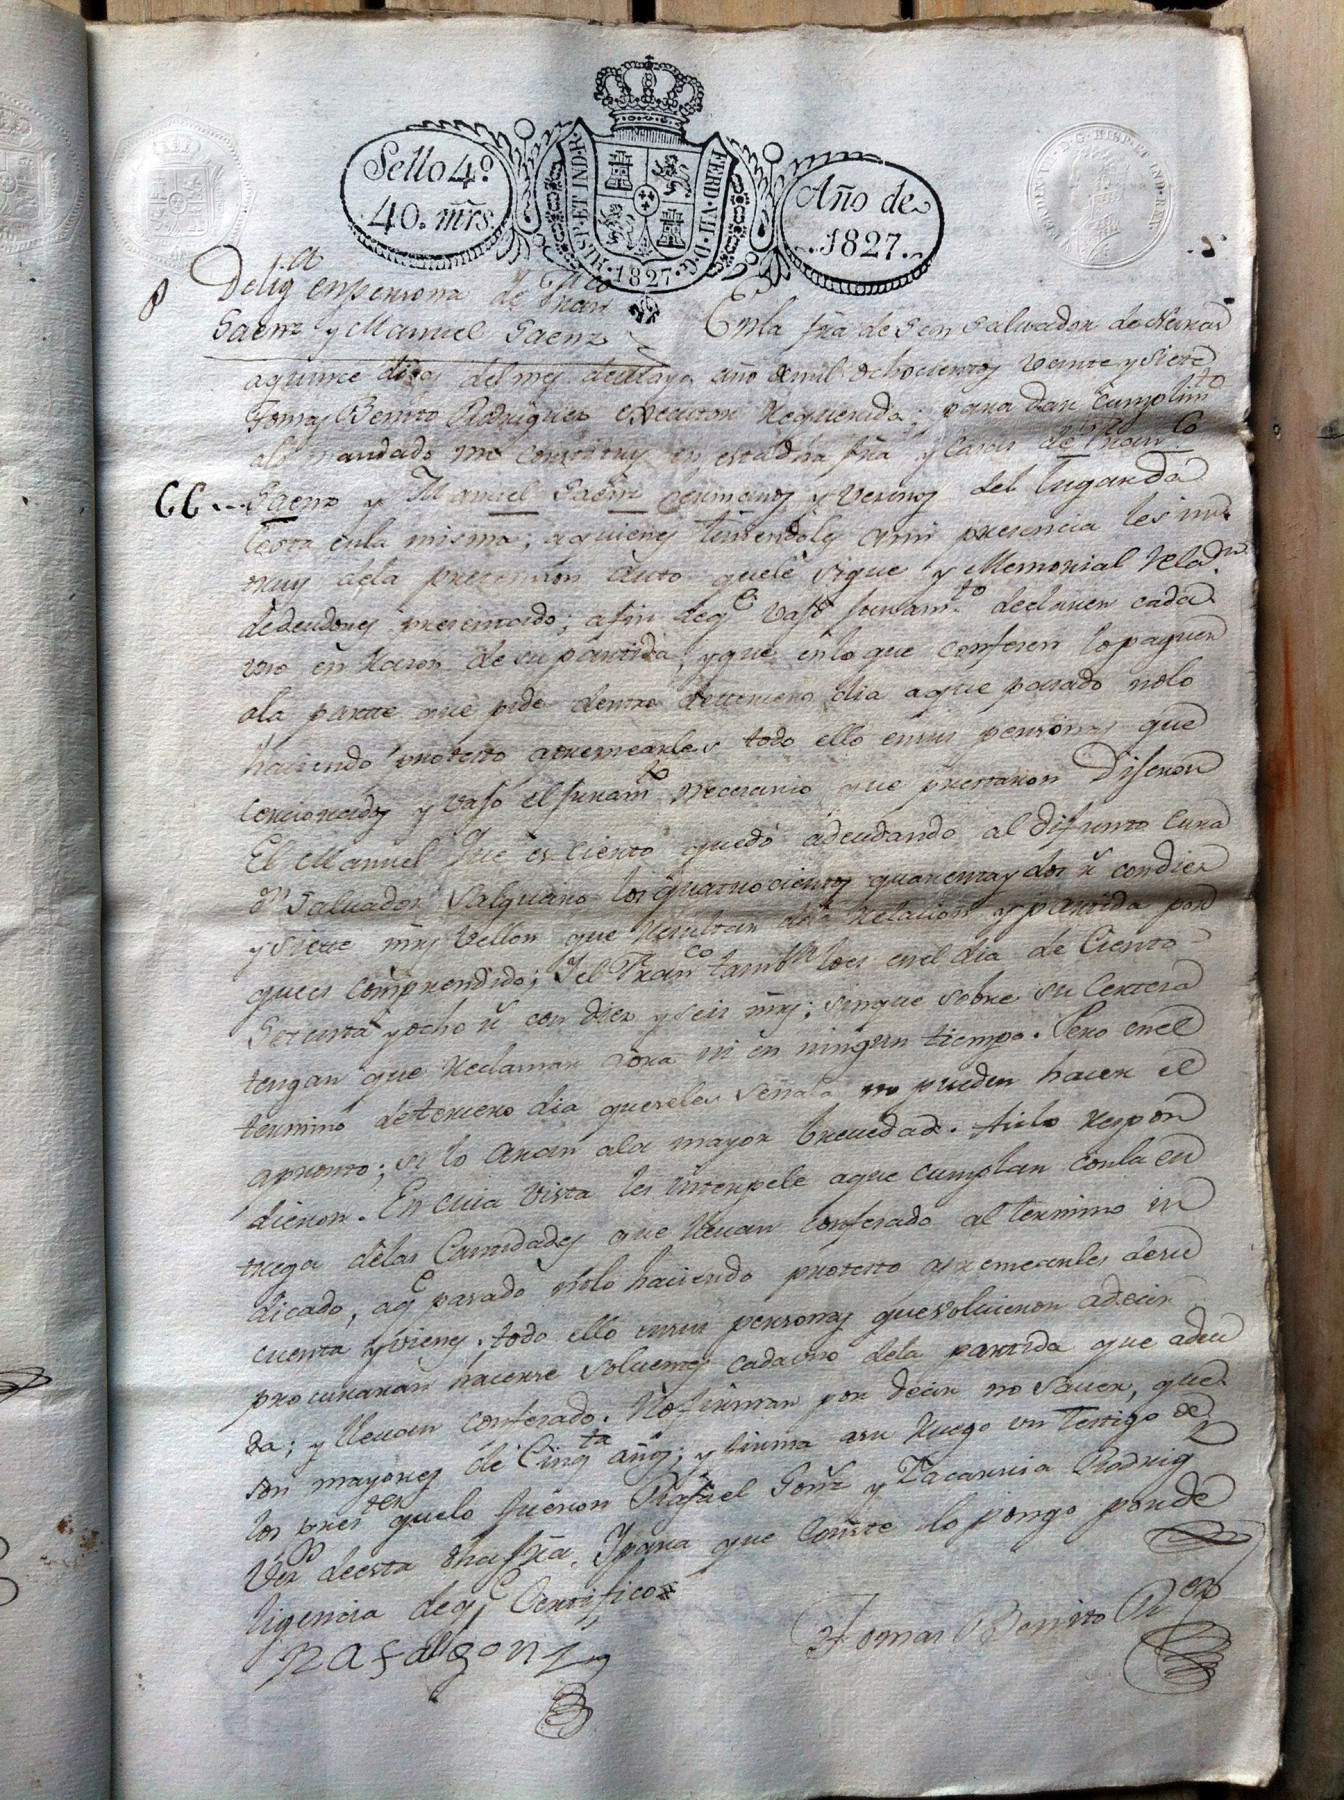 Sello 4º
40. mrs.
HISP. ET IND. R.
FERD. VII. D. G.
1827
Año de
1827.
Delig.ia enpersona de Fran.co
Saenz y Manuel Saenz
Enla fra de San Salvador de
aquince dias del mes demayo año demil ochocientos veinte y siete
Tomas Benito Rodriguez executor Requerido; para dar cumplim.to
alo mandado me constituy en estadha fra y casas de Fran.co
Saenz y Manuel Saenz ermanos y vecinos del lugar da
en la misma; aquienes teniendoles ami presencia les ins
truy dela auto quele sigue y Memorial
dedeudores presentado; afin deq.e vajo juram.to declaren cada
uno en razon desu partida, yque enlo que confesen lo paguen
ala parte que pide dentro detercero dia aque pasado nolo
haciendo protesto apremearles todo ello ensus personas que
cercionados y vajo el juram.to necesario que prestaron Dijeron
El Manuel que es ciento quedó adeudando al difunto Cura
D.n Salvador Salgueiro los quatrocientos quarenta y dos r.s con diez
y siete mrs vellon que resultan dela relacion y partida por
quees comprendido; Y el Fran.co tambn loes enel dia de Ciento
Setenta yocho r.s con diez y seis mrs; sinque sobre su Certeza
tengan que reclamar aora ni en ningun tiempo. Pero enel
termino detercero dia queseles señala no pueden hacer el
apronto; si lo aran ala mayor brevedad. Asilo respon
dieron. En cuia vista les interpele aque cumplan conla en
trega delas Cantidades que llevan confesado al termino in
dicado, aq.e pasado nolo haciendo protesto apremearles desu
cuenta y vienes. todo ello ensus personas quevolvieron adecir
procuraran hacerse solventes cadauno dela partida que adeu
da; y llevan confesado. No firman por decir no saver, que
son mayores de Cinq.ta años; y firma asu ruego un Testigo de
los pres.tes quelo fueron Rafael Gonz y Zacarria Rodrig
deesta dha fra. Ypara que conste lo pongo porde
ligencia deq.e Certifico
Rafael gonz
Tomas Benito Rez